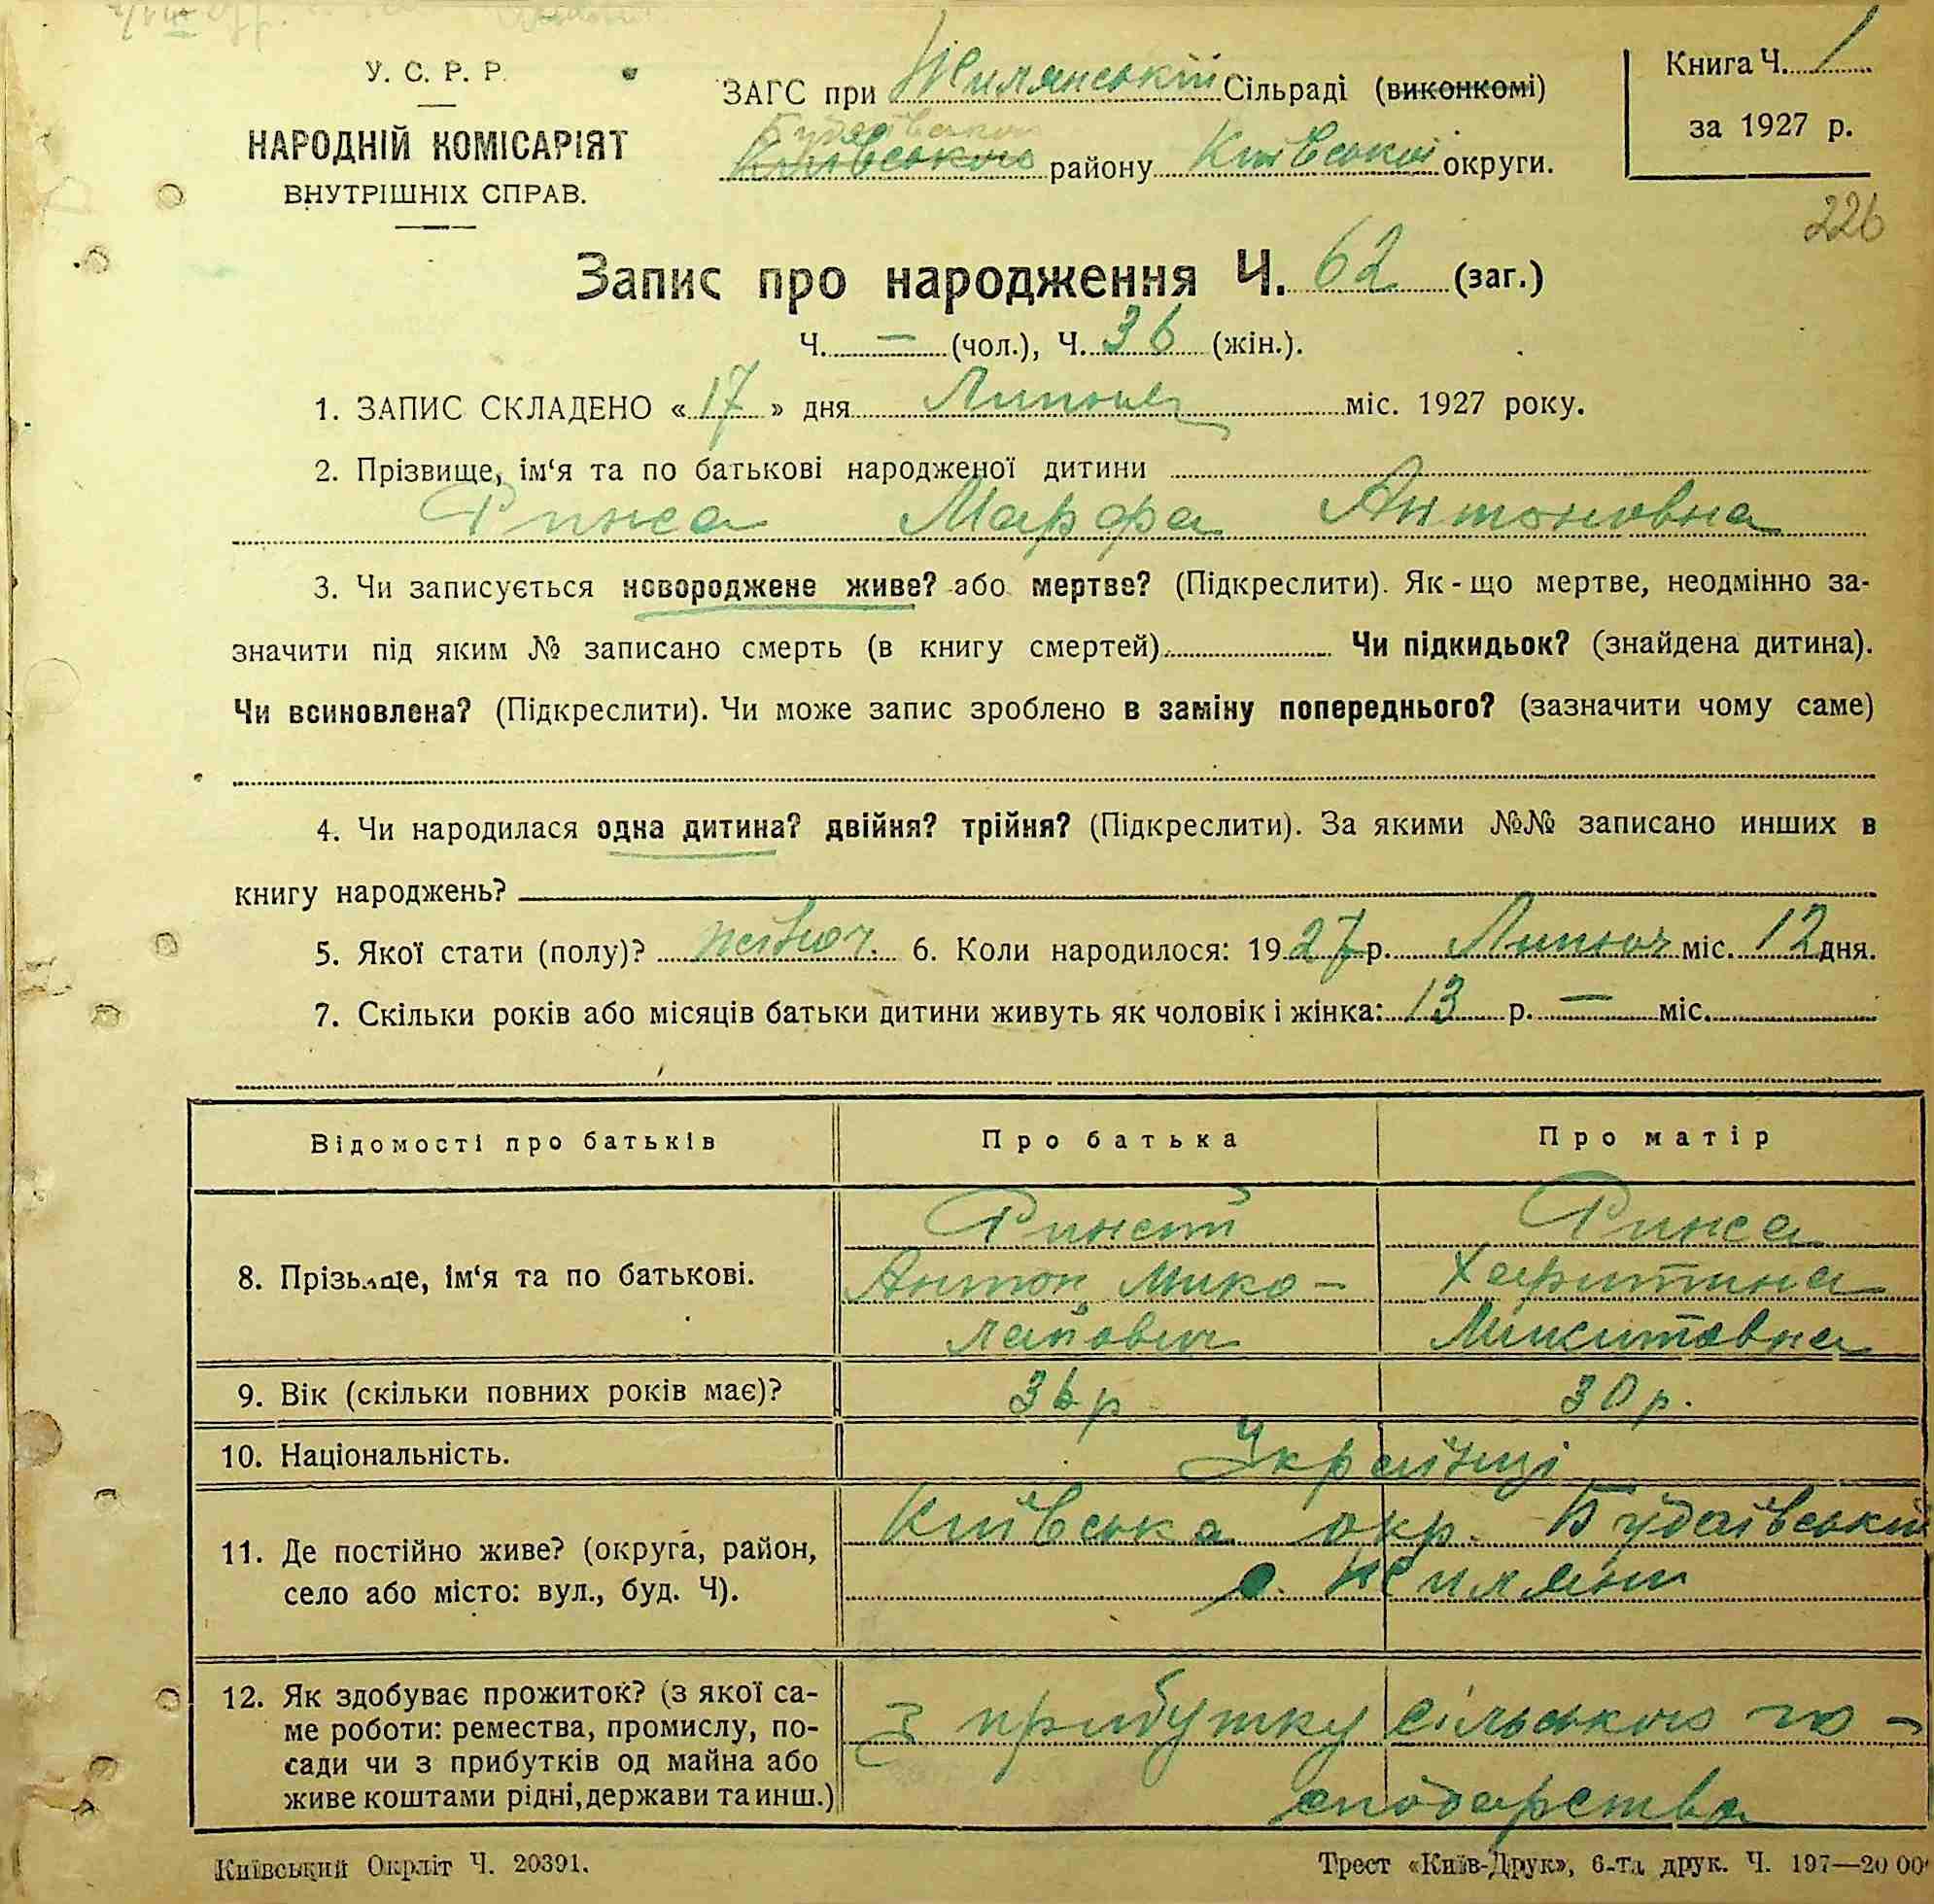 У. С. Р. Р.
НАРОДНІЙ КОМІСАРІЯТ
ВНУТРІШНІХ СПРАВ.
ЗАГС при Жилянській Сільраді (виконкомі)
Будаївського
Київського району Київської округи.
Книга Ч. 1
за 1927 р.
226
Запис про народження Ч. 62 (заг.)
Ч. — (чол.), Ч. 36 (жін.).
1. ЗАПИС СКЛАДЕНО «17» дня Липня міс. 1927 року.
2. Прізвище, ім‘я та по батькові народженої дитини
Рижа Марфа Антоновна
3. Чи записується новороджене живе? або мертве? (Підкреслити). Як-що мертве, неодмінно за-
значити під яким № записано смерть (в книгу смертей) Чи підкидьок? (знайдена дитина).
Чи всиновлена? (Підкреслити). Чи може запис зроблено в заміну попереднього? (зазначити чому саме)
4. Чи народилася одна дитина? двійня? трійня? (Підкреслити). За якими №№ записано инших в
книгу народжень?
5. Якої стати (полу)? жіноч. 6. Коли народилося: 1927 р. Липня міс. 12 дня.
7. Скільки років або місяців батьки дитини живуть як чоловік і жінка: 13 р. — міс.
Відомості про батьків Про батька Про матір
8. Прізьвище, ім‘я та по батькові.
Рижий Рижа
Антон Мико- Харитина
лайович Микитовна
9. Вік (скільки повних років має)? 36 р 30 р.
10. Національність. Українці
11. Де постійно живе? (округа, район,
село або місто: вул., буд. Ч).
Київська окр. Будаївський
с. Жиляни
12. Як здобуває прожиток? (з якої са-
ме роботи: ремества, промислу, по-
сади чи з прибутків од майна або
живе коштами рідні, держави та инш.)
З прибутку сільського го-
сподарства
Київський Окрліт Ч. 20391.
Трест «Київ-Друк», 6-та друк. Ч. 197—20 00